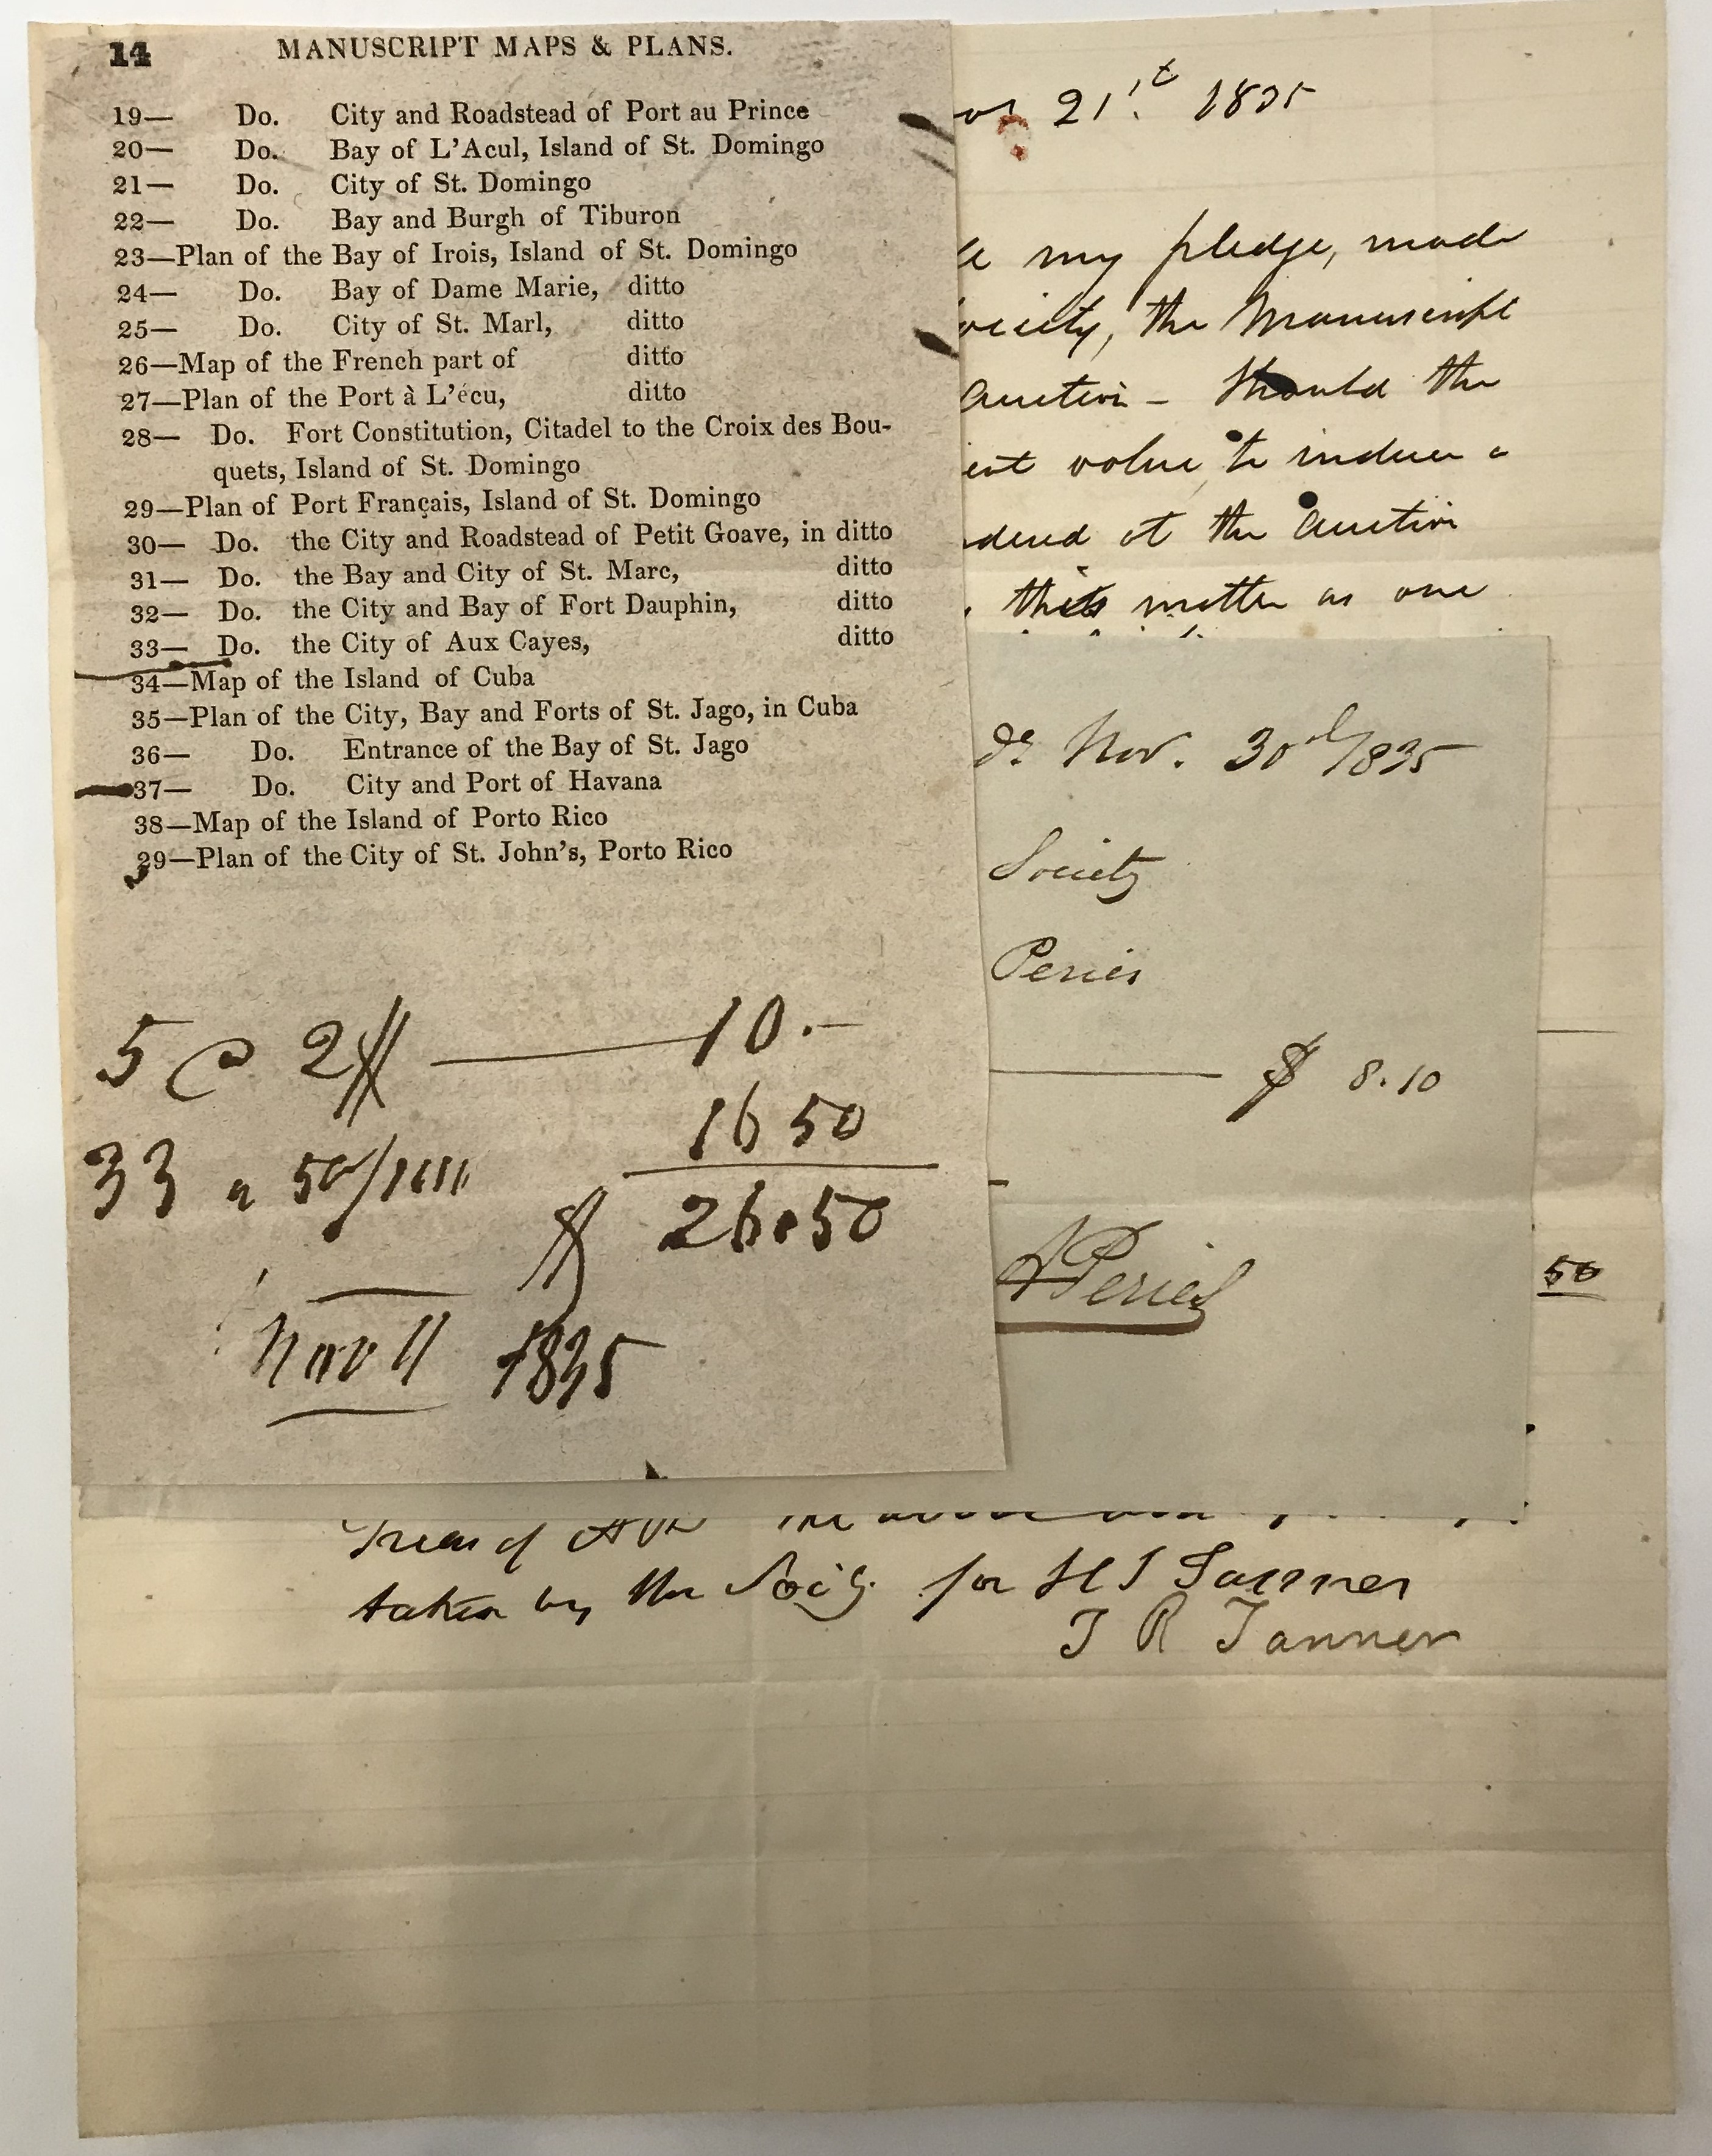 14 MANUSCRIPT MAPS & PLANS.
19— Do. City and Roadstead of Port au Prince
20— Do. Bay of L'Acul, Island of St. Domingo
21— Do. City of St. Domingo
22— Do. Bay and Burgh of Tiburon
23—Plan of the Bay of Irois, Island of St. Domingo
24— Do. Bay of Dame Marie, ditto
25— Do. City of St. Marl, ditto
26—Map of the French part of ditto
27—Plan of the Port à L'écu, ditto
28— Do. Fort Constitution, Citadel to the Croix des Bou-
quets, Island of St. Domingo
29—Plan of Port Français, Island of St. Domingo
30— Do. the City and Roadstead of Petit Goave, in ditto
31— Do. the Bay and City of St. Marc, ditto
32— Do. the City and Bay of Fort Dauphin, ditto
33— Do. the City of Aux Cayes, ditto
34—Map of the Island of Cuba
35—Plan of the City, Bay and Forts of St. Jago, in Cuba
36— Do. Entrance of the Bay of St. Jago
37— Do. City and Port of Havana
38—Map of the Island of Porto Rico
29—Plan of the City of St. John's, Porto Rico
5 @ 2$ — 10.—
33 " 50/ 16 50
$ 26.50
Nov 11 1835
21st 1835
my pledge, made
ociety, the Manuscript
Auction – Should the
value to induce a
at the Auction
this matter as one
Nov. 30th/1835
Society
Peries
$ 8.10
A Peries
50
taken by the Socy. for H S Tanner
T R Tanner